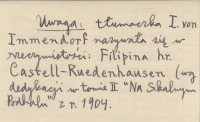 Uwaga: tłumaczka I. von
Immendorf nazywała się w
rzeczywistości: Filipina hr.
Castell-Ruedenhausen (wg
dedykacji w tomie II "Na Skalnym
Podhalu" z r. 1904.